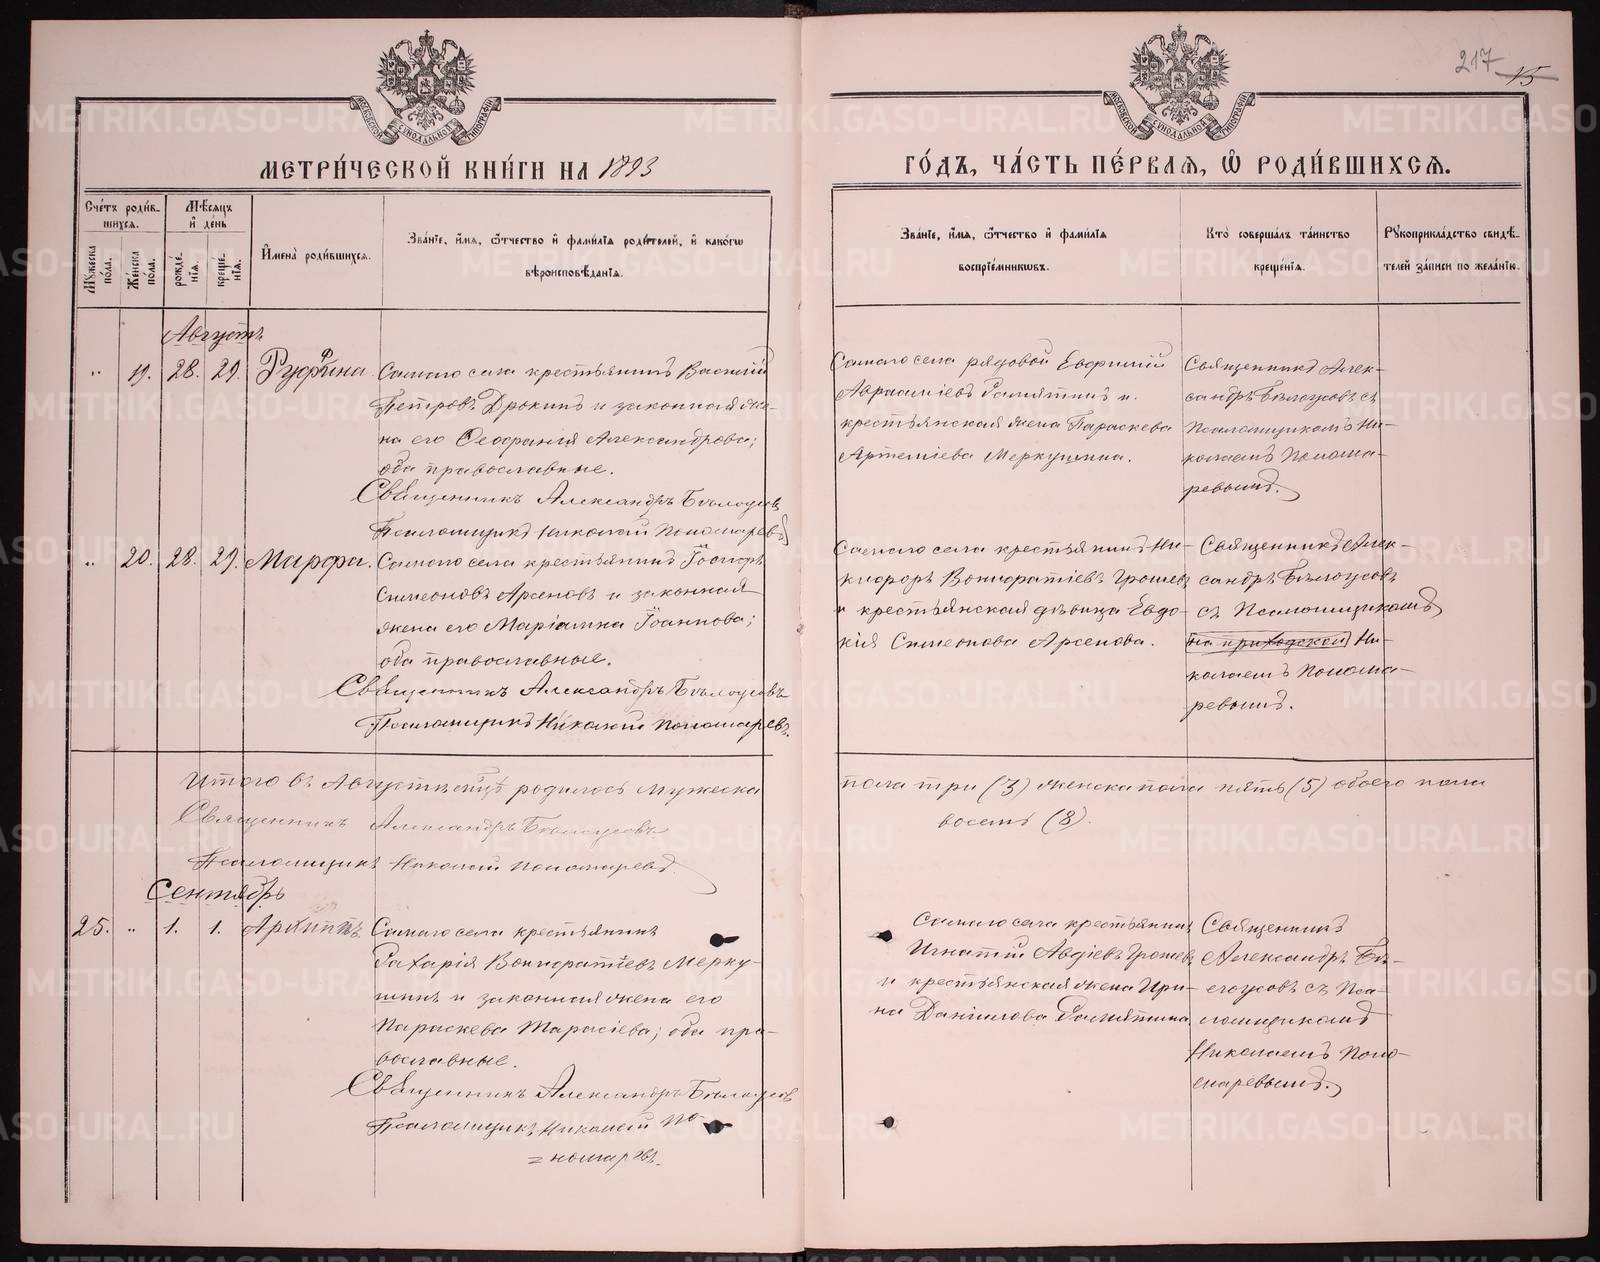 217 15
МЕТРИ́ЧЕСКОЙ КНИ́ГИ НА 1893
ГО́ДЪ, ЧА́СТЬ ПЕ́РВАЯ, Ѡ РОДИ́ВШИХСЯ.
Сче́тъ роди́в-
шихся.
Му́жеска по́ла.
Же́нска по́ла.
Мѣ́сяцъ и҆ де́нь
рожде́-
нїя.
креще́-
нїя.
И҆мена̀ роди́вшихся.
Зва́нїе, и҆́мя, ѻ҆́тчество и҆ фами́лїя роди́телей, и҆ како́гѡ
вѣроисповѣ́данїя.
Зва́нїе, и҆́мя, ѻ҆́тчество и҆ фами́лїя
воспрїе́мниковъ.
Кто̀ соверша́лъ та́инство
креще́нїя.
Рꙋкоприкла́дство свидѣ́-
телей за́писи по жела́нїю.
Августъ
" 19. 28. 29. Руфина.
Самаго села крестьянинъ Василій
Петровъ Дрокинъ и законная же-
на его Ѳеофанія Александрова;
оба православные.
Священникъ Александръ Бѣлоусовъ
Псаломщикъ Николай Пономаревъ
Самаго села рядовой Евфимій
Авраамiевъ Замятинъ и
крестьянская жена Параскева
Артемiева Меркушина.
Священникъ Алек-
сандръ Бѣлоусовъ съ
Псаломщикомъ Ни-
колаемъ Понома-
ревымъ.
" 20. 28. 29. Марфа.
Самаго села крестьянинъ Іосифъ
Симеоновъ Арсеновъ и законная
жена его Маріамна Іоаннова;
оба православные.
Священникъ Александръ Бѣлоусовъ
Псаломщикъ Николай Пономаревъ.
Самаго села крестьянинъ Ни-
кифоръ Вонифатіевъ Грошевъ
и крестьянская дѣвица Евдо-
кія Симеонова Арсенова.
Священникъ Алек-
сандръ Бѣлоусовъ
съ Псаломщикомъ
Ни-
колаемъ Понома-
ревымъ.
Итого въ Августѣ мцѣ родилось мужеска
пола три (3) женска пола пять (5) обоего пола
восемь (8).
Священникъ Александръ Бѣлоусовъ
Псаломщикъ Николай Пономаревъ.
Сентябрь
25. " 1. 1. Архиппъ.
Самаго села крестьянинъ
Захарія Вонифатіевъ Мерку-
шинъ и законная жена его
Параскева Тарасіева; оба пра-
вославные.
Священникъ Александръ Бѣлоусовъ
Псаломщикъ Николай По-
=номаревъ.
Самаго села крестьянинъ
Игнатій Авдіевъ Грошевъ
и крестьянская жена Ири-
на Даніилова Замятина.
Священникъ
Александръ Бѣ-
лоусовъ съ Пса-
ломщикомъ
Николаемъ Поно-
маревымъ.
METRIKI.GASO-URAL.RU